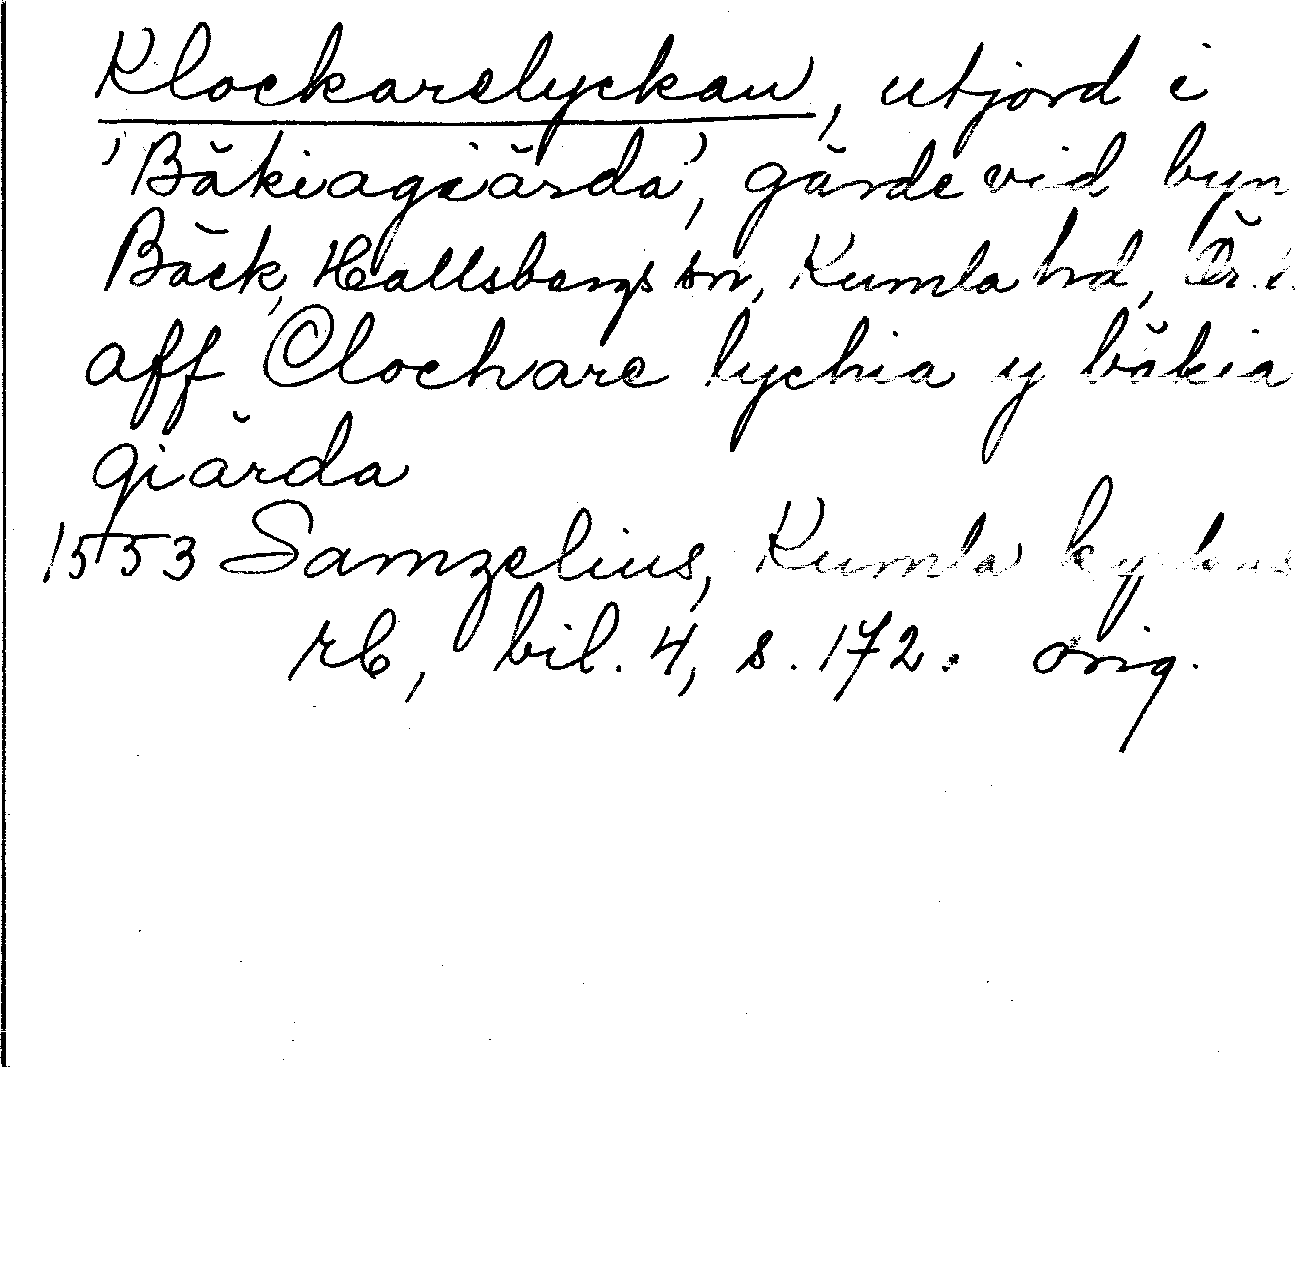 Klockarelyckan, utjord i
'Bäkiagiärda', gärde vid byn
Bäck, Hallsbergs sn, Kumla hd, Ör.
aff Clochare lychia y bäkia
giärda
1553 Samzelius, Kumla kyrkas
rb, bil. 4, s. 172. orig.